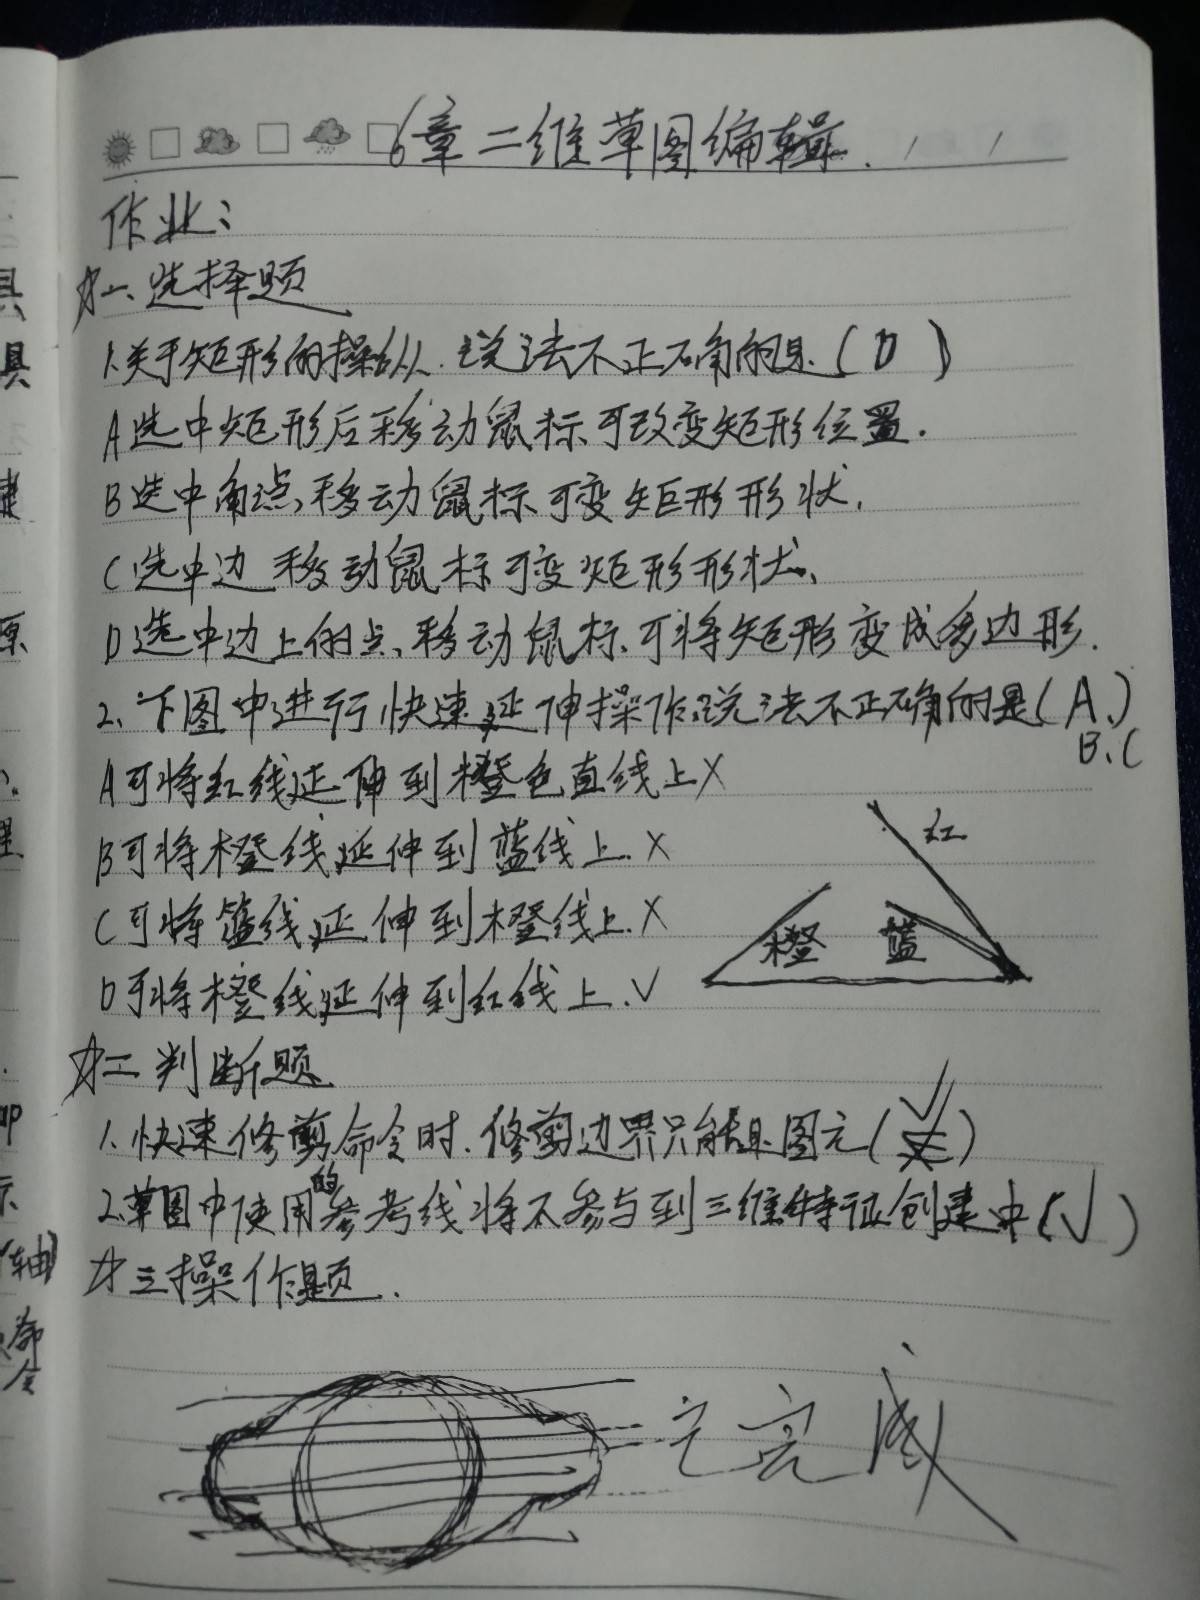 6章二维草图编辑.
作业:
☆一、选择题
1.关于矩形的操纵.说法不正确的是(D)
A选中矩形后移动鼠标可改变矩形位置.
B选中角点,移动鼠标可变矩形形状.
C选中边移动鼠标可变矩形形状.
D选中边上的点,移动鼠标,可将矩形变成多边形.
2、下图中进行快速延伸操作,说法不正确的是(A、)
B、C
A可将红线延伸到橙色直线上X
B可将橙线延伸到蓝线上.X
红
C可将篮线延伸到橙线上.X
橙 蓝
D可将橙线延伸到红线上.√
☆二判断题
1.快速修剪命令时.修剪边界只能是图元(√)
2.草图中使用的参考线将不参与到三维特征创建中(√)
☆三操作题.
已完成
具
具
建
原
理
轴)
命令